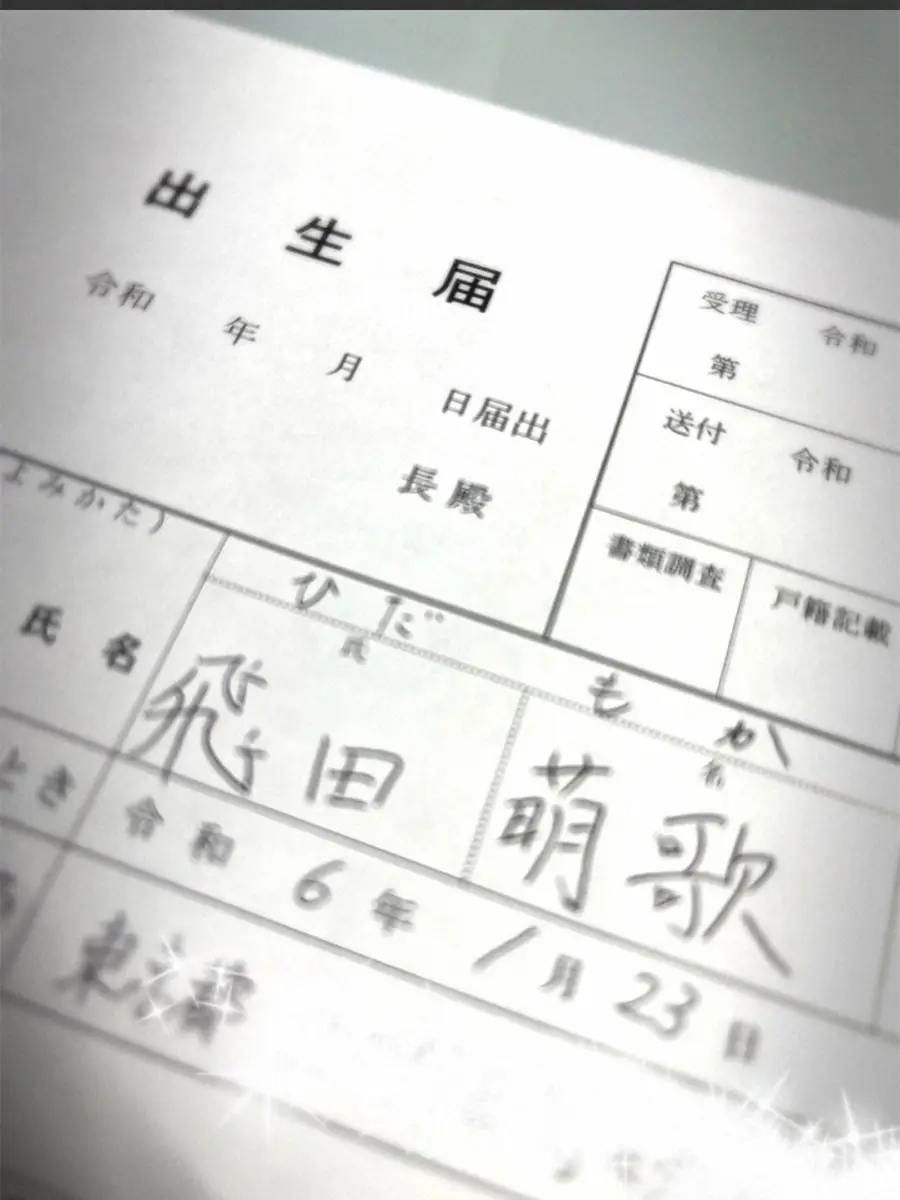 出生届
令和 年 月 日届出
長殿
受理 令和
第
送付 令和
第
書類調査 戸籍記載
よみかた)
ひだ もか
氏 名
氏名 飛田 萌歌
とき 令和 6年 1月 23日
東京都